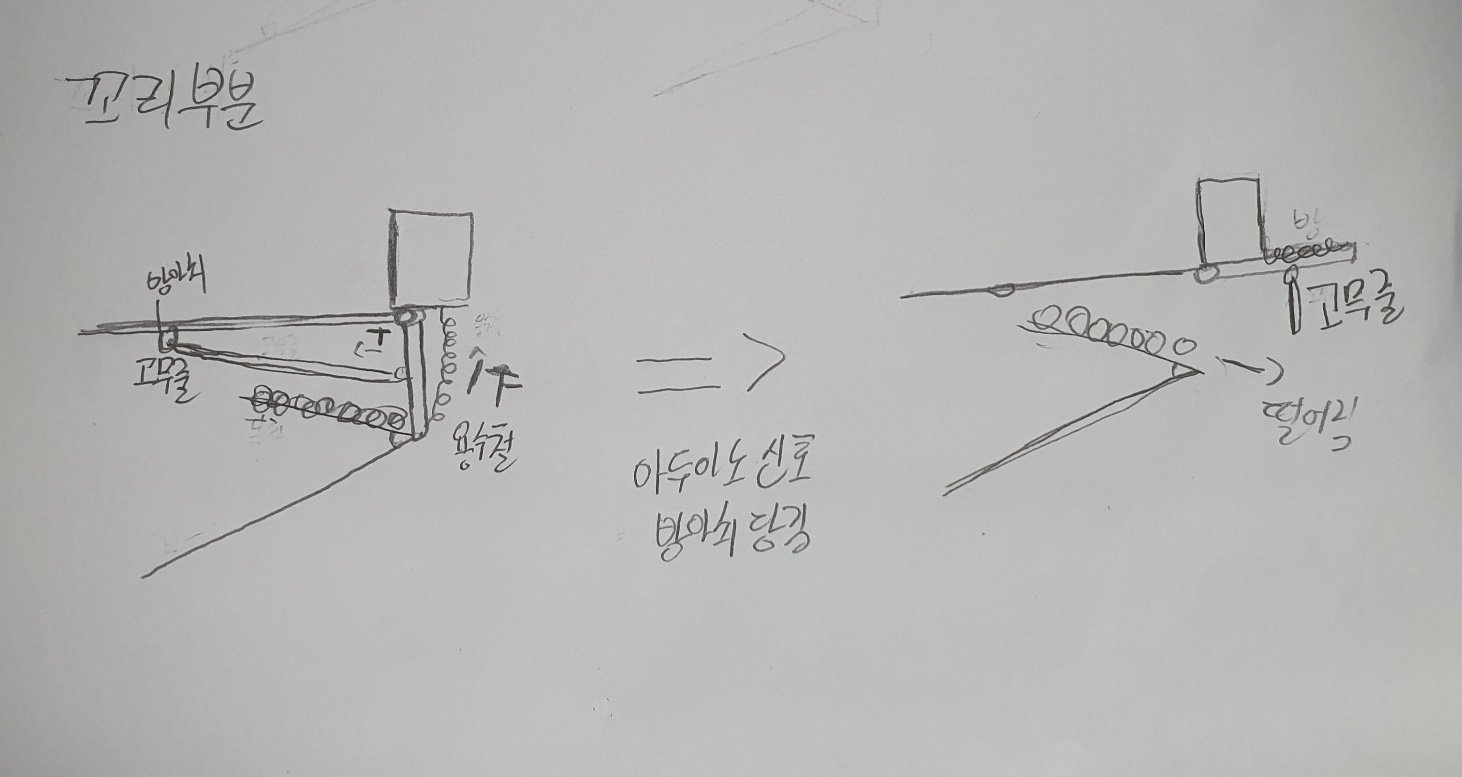 꼬리부분
방아쇠
고무줄
용수철
아두이노 신호
방아쇠 당김
고무줄
떨어짐